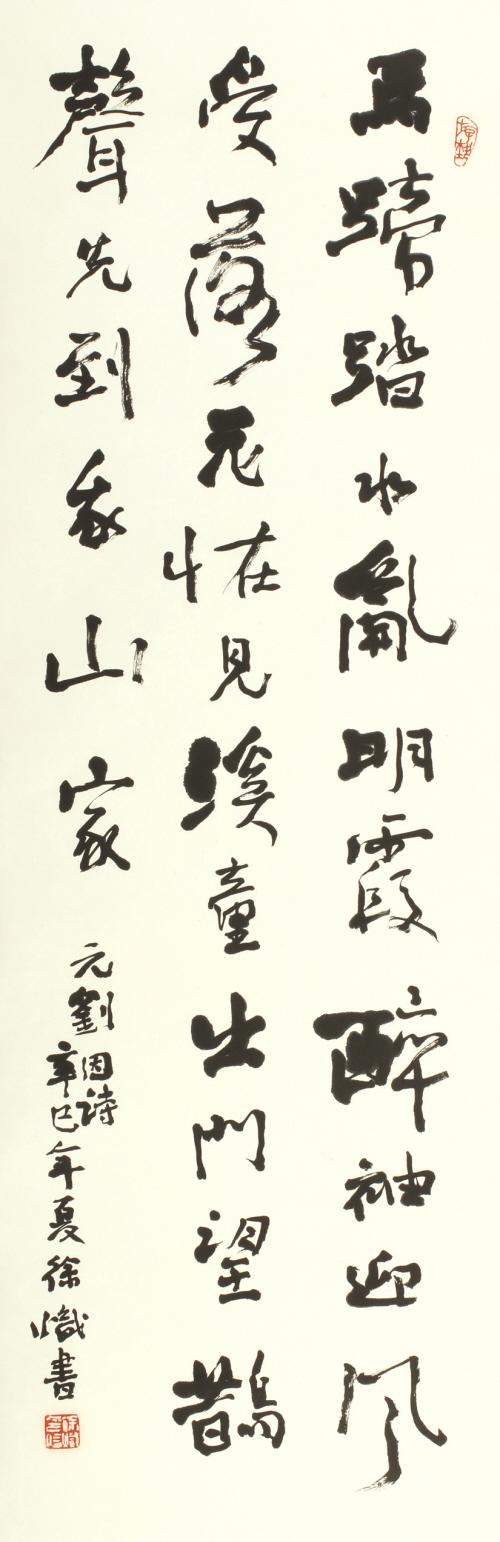 馬蹄踏水亂明霞醉袖迎风
受落花恠見溪童出門望鵲
聲先到我山家
元劉因詩
辛巳年夏徐熾書